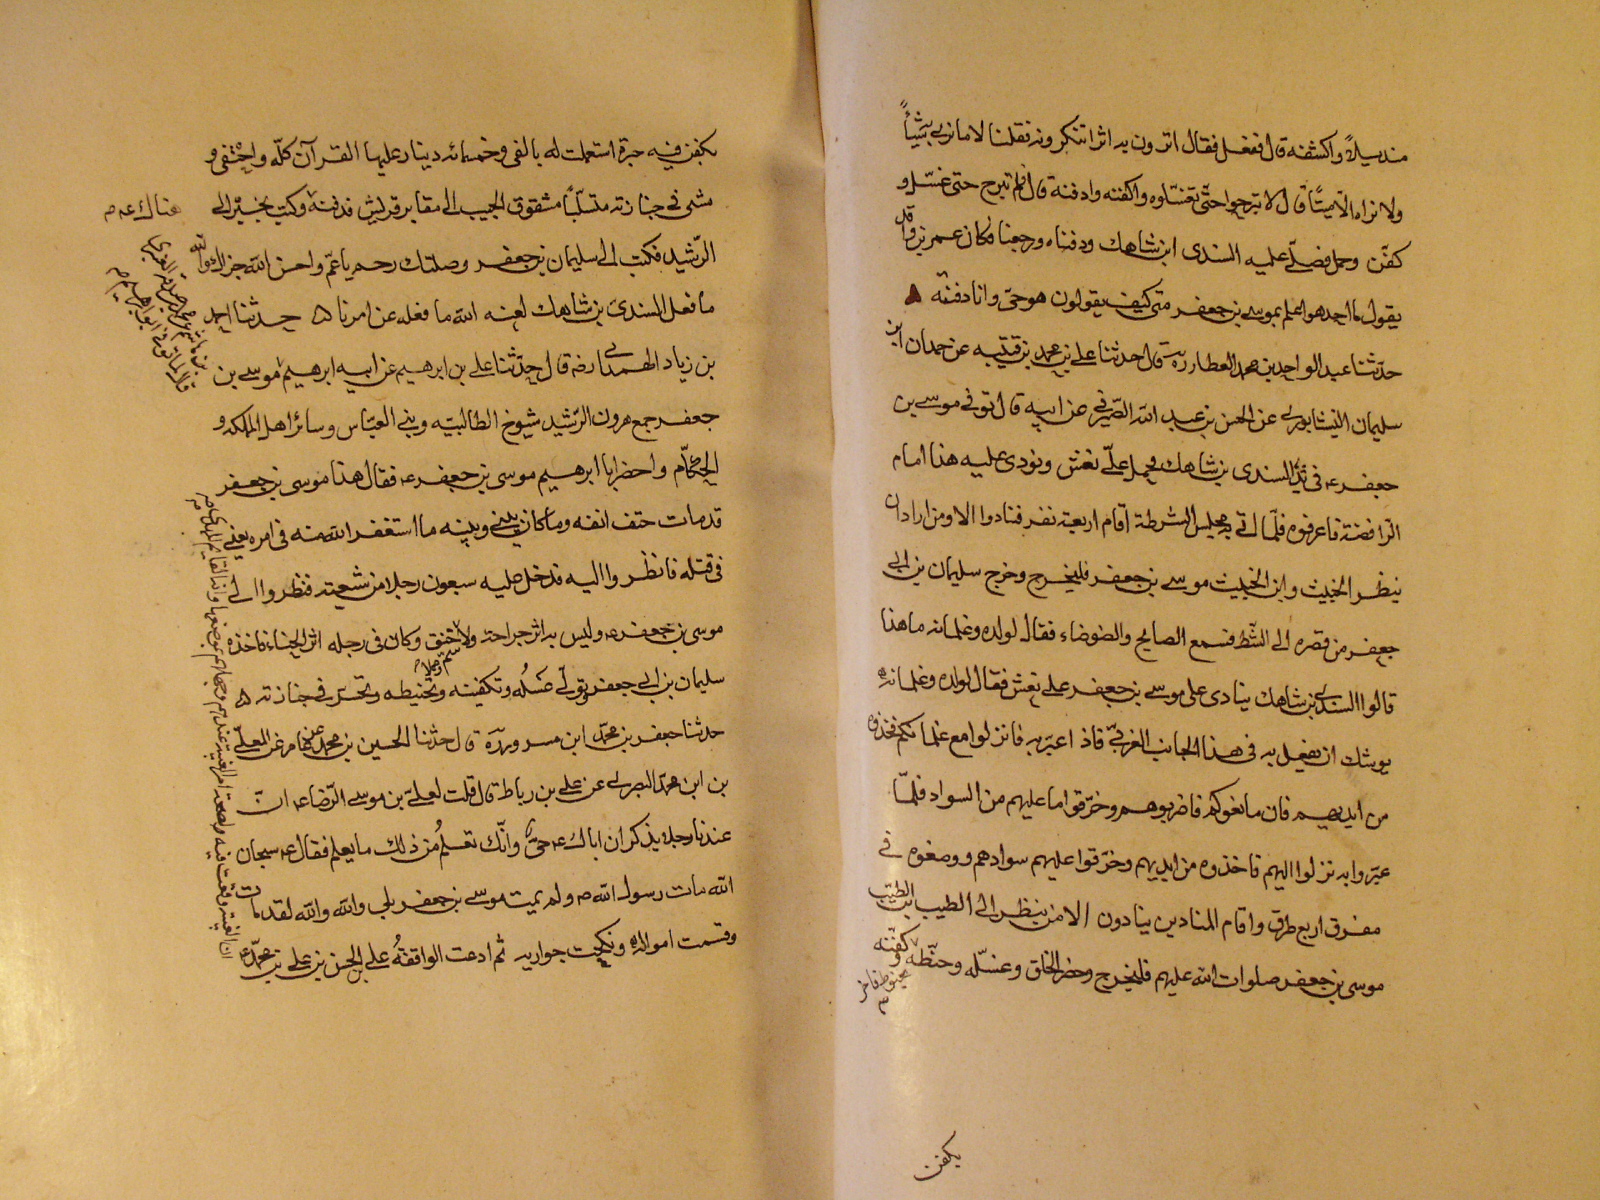 منديلاً واكشفه قال ففعل فقال اترون به اثرا تنكرونه فقلنا لا ما نرى به شيئاً
ولا نراه الا ميتًا قال لا تبرحوا حتّى تغسّلوه واكفنه وادفنه قال فلم نبرح حتى غسّل و
كفّن وحمل فصلّى عليه السندى ابن شاهك ودفناه ورجعنا فكان عمر بن واقد
يقول ما احد هو اعلم بموسى بن جعفر منى كيف يقولون هو حىّ وانا دفنته
حدّثنا عبد الواحد بن محمد العطار ره قال حدثنا على بن محمد بن قتيبه عن حمدان ابن
سليمان النيشابورى عن الحسن بن عبد الله الصّيرفى عن ابيه قال توفى موسى بن
جعفر ع فى يد السندى بن شاهك فحمل على نعش ونودى عليه هذا امام
الرّافضة فاعرفوه فلمّا اتى به مجلس الشرطة اقام اربعة نفر فنادوا الا ومن اراد ان
ينظر الخبيث وابن الخبيث موسى بن جعفر فليخرج وخرج سليمان بن ابى
جعفر من قصره الى الشّط فسمع الصايح والضوضاء فقال لولده وغلمانه ما هذا
قالوا السندى بن شاهك ينادى على موسى بن جعفر على نعش فقال لولده وغلمانه
يوشك ان يفعل به فى هذا الجانب الغربىّ فاذا عبر به فانزلوا مع غلمانكم فخذوه
من ايديهم فان مانعوكم فاضربوهم وخرّقوا ما عليهم من السواد فلمّا
عبروا به نزلوا اليهم فاخذوه من ايديهم وخرّقوا عليهم سوادهم ووضعوه فى
مفرق اربع طرق واقام المنادين ينادون الا من ينظر الى الطيب ابن الطيب
موسى بن جعفر صلوات الله عليهم فليخرج وحضر الخلق وغسّله وحنّطه وكفّنه
بحنوط فاخر
يكفن
يكفن فيه حبرة استعملت له بالفى وخمسائه دينار عليها القرآن كلّه واحتفى و
مشى فى جنازته متسلّبًا مشقوق الجيب الى مقابر قريش فدفنه وكتب بخبره الى
هناك ع م
الرّشيد فكتب الى سليمان بن جعفر وصلتك رحم يا عمّ واحسن الله جزاك والله
ما فعل السندى بن شاهك لعنه الله ما فعله عن امرنا حدثنا احمد
بن زياد الهمدانى رضه قال حدّثنا على بن ابرهيم عن ابيه ابرهيم موسى بن
جعفر جمع هرون الرّشيد شيوخ الطالبيه وبنى العبّاس وسائر اهل المملكه و
الحكّام واحضر ابا ابرهيم موسى بن جعفر ع فقال هذا موسى بن جعفر
قد مات حتف انفه وما كان بينى وبينه ما استغفر الله منه فى امره يعنى
فى قتله فانظروا اليه فدخل عليه سبعون رجلا من شيعته فنظروا الى
موسى بن جعفر ع وليس به اثر جراحة ولا خنق وكان فى رجله اثر الحناء فاخذه
سليمان بن ابى جعفر وتولّى غسله وتكفينه وتحنيطه وتحسّر فى جنازته
حدثنا جعفر بن محمّد ابن مسرور ره قال حدثنا الحسين بن محمد عن عامر عن المعلّى
بن محمّد البصرى عن على بن رباط قال قلت لعلىّ بن موسى الرّضا ع انّ
عندنا رجلا يذكر ان اباك ع حىّ وانّك تعلم من ذلك ما يعلم فقال ع سبحان
الله مات رسول الله ص ولم يمت موسى بن جعفر بلى والله والله لقد مات
وقسمت امواله ونكحت جواريه ثم ادعت الواقفةُ على الحسن بن على بن محمّد ع